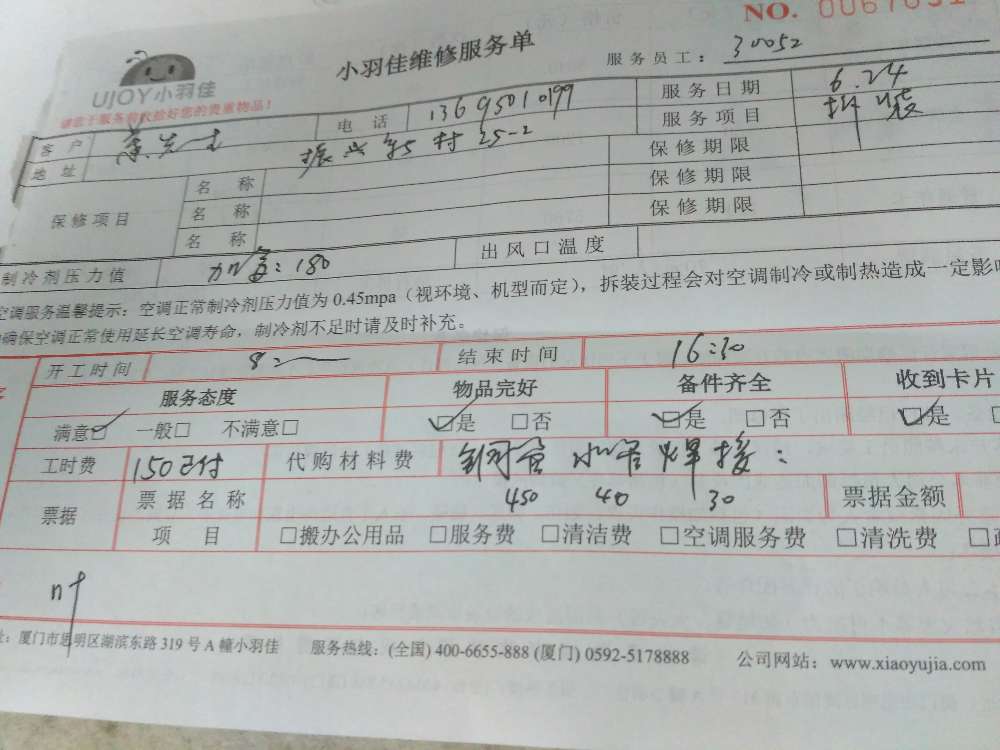 NO. 0067031
小羽佳维修服务单
服务员工： 30052
UJOY 小羽佳
客户 先生 电话 13695010199 服务日期 6.24
地址 振兴新村 25-2 服务项目 拆装
保修项目 名称 保修期限
名称 保修期限
名称 保修期限
制冷剂压力值 加氟：180 出风口温度
空调服务温馨提示：空调正常制冷剂压力值为 0.45mpa（视环境、机型而定），拆装过程会对空调制冷或制热造成一定影响
确保空调正常使用延长空调寿命，制冷剂不足时请及时补充。
开工时间 8 结束时间 16:30
服务态度 物品完好 备件齐全 收到卡片
满意☑ 一般□ 不满意□ ☑是 □否 ☑是 □否 ☑是
工时费 150已付 代购材料费 铜管 水管 焊接：
票据 票据名称 450 40 30 票据金额
项目 □搬办公用品 □服务费 □清洁费 □空调服务费 □清洗费
址：厦门市思明区湖滨东路 319 号 A 幢小羽佳 服务热线：(全国) 400-6655-888 (厦门) 0592-5178888 公司网站：www.xiaoyujia.com